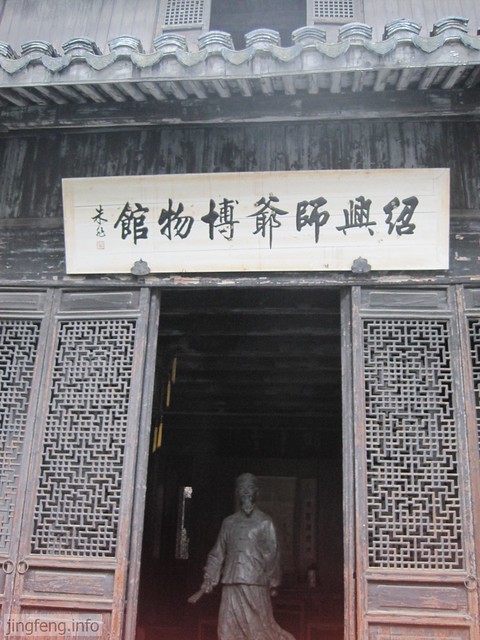 紹興師爺博物館
jingfeng.info